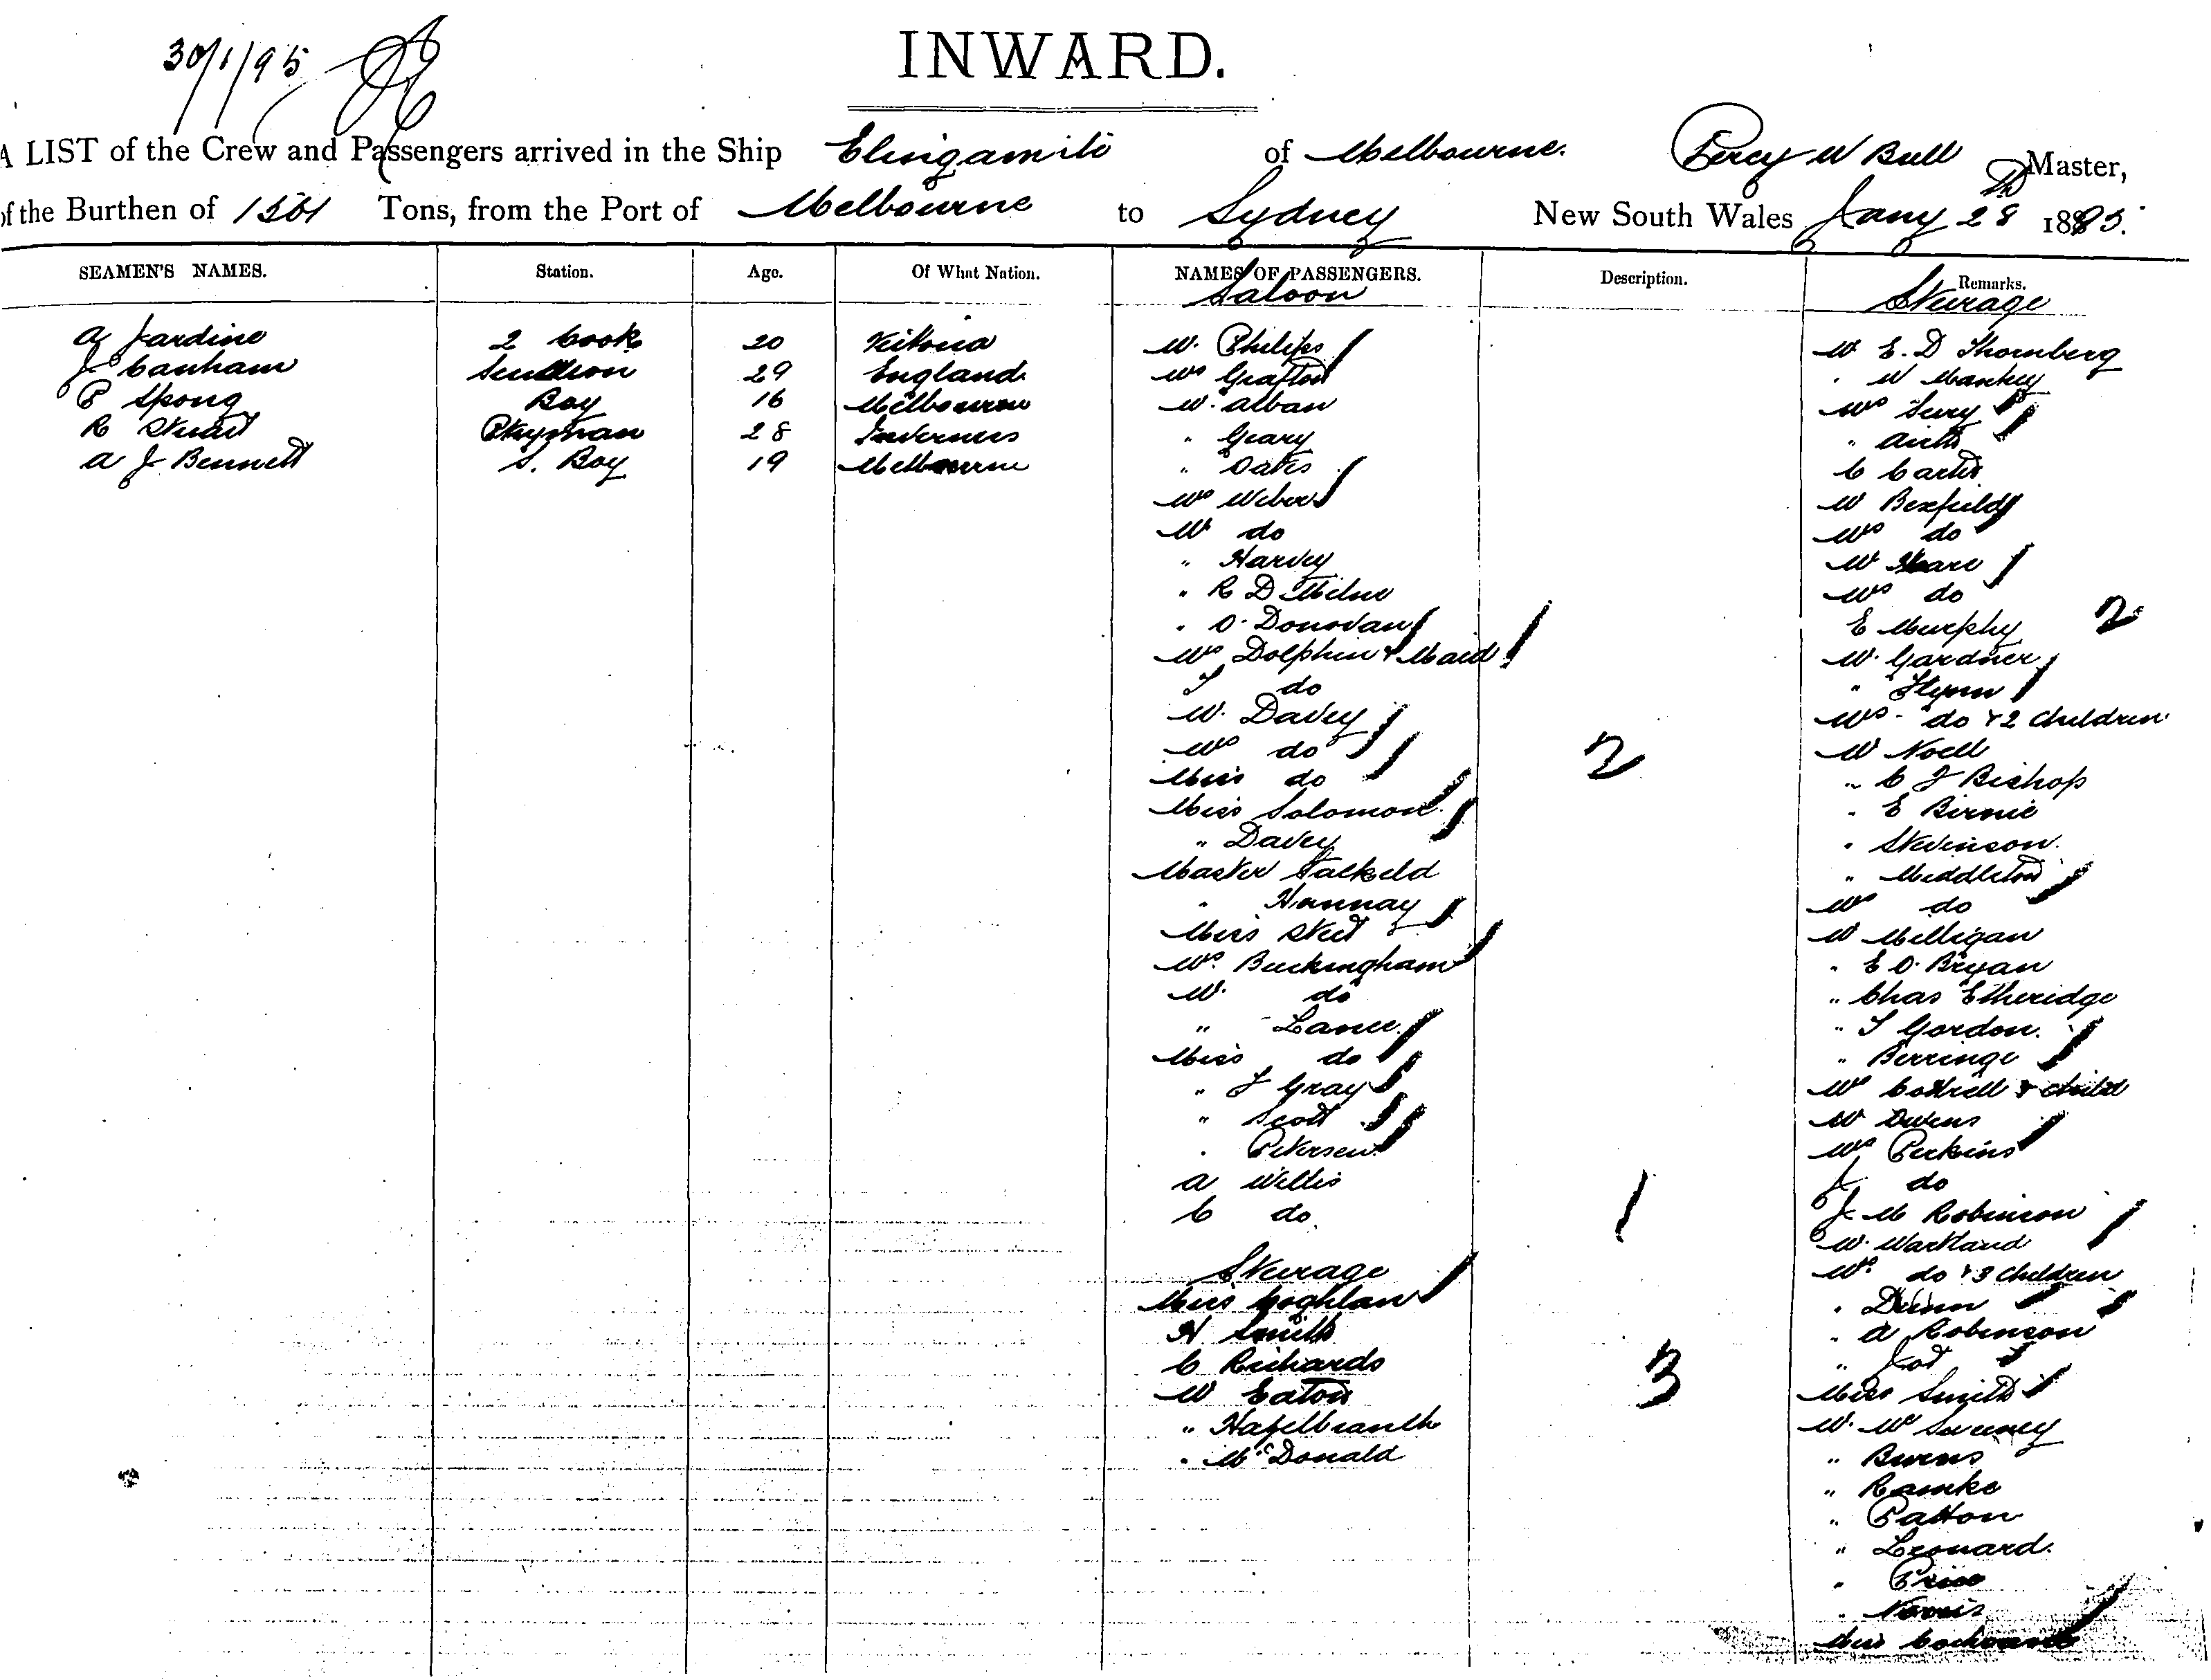 30/1/95
INWARD.
A LIST of the Crew and Passengers arrived in the Ship Elingamite of Melbourne. Percy W Bull Master,
of the Burthen of Tons, from the Port of Melbourne to Sydney New South Wales Jany 28th 1895.
SEAMEN'S NAMES. Station. Age. Of What Nation. NAMES OF PASSENGERS. Description. Remarks.
Saloon Steerage
A Jardine 2 Cook 20 Victoria
J Canham Scullion 29 England
P Spong Boy 16 Melbourne
R Stuart Ptryman 28 Inverness
A J Bennett S. Boy 19 Melbourne
Mr Philips
Mrs Grafton
Mr Alban
" Geary
" Oates
Mrs Weber
Mr do
" Harvey
" R D Milne
" O'Donovan
Mrs Dolphin & Maid
do
Mr Davey
Mrs do
Miss do
2
Miss Solomon
" Davey
Master Salkeld
" Hannay
Miss Skeet
Mrs Buckingham
Mr do
" Lance
Miss do
" J Gray
" Scott
" Petersen
A Willis
C do
1
Steerage
Miss Coghlan
H Smith
C Richards
Mr Eaton
3
" Hazelbranth
" McDonald
Mr E. D Thornberg
" W
Mrs
"
C Carter
Mr Bexfield
Mrs do
Mr
Mrs do
E Murphy
2
Mr Gardner
" Flynn
Mrs do & 2 Children
Mr Noell
" C J Bishop
" E Birnie
" Stevenson
" Middleton
Mrs do
Mr Milligan
" E O'Bryan
" Chas Etheridge
" T Gordon
" Berringe
Mrs Cottrell & child
Mr Owens
Mrs Perkins
do
J M Robinson
Mr Wartland
Mrs do & 3 children
" Dunn
" A Robinson
"
Miss Smith
Mr McSweeney
" Burns
" Ramke
" Patton
" Leonard
" Price
" Norris
Miss Cochrane